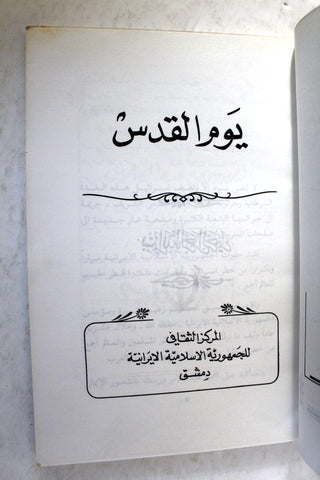 يَوم القدسْ
المركز الثقافي
للجمهوريّة الاسلاميّة الايرانيّة
دمشق